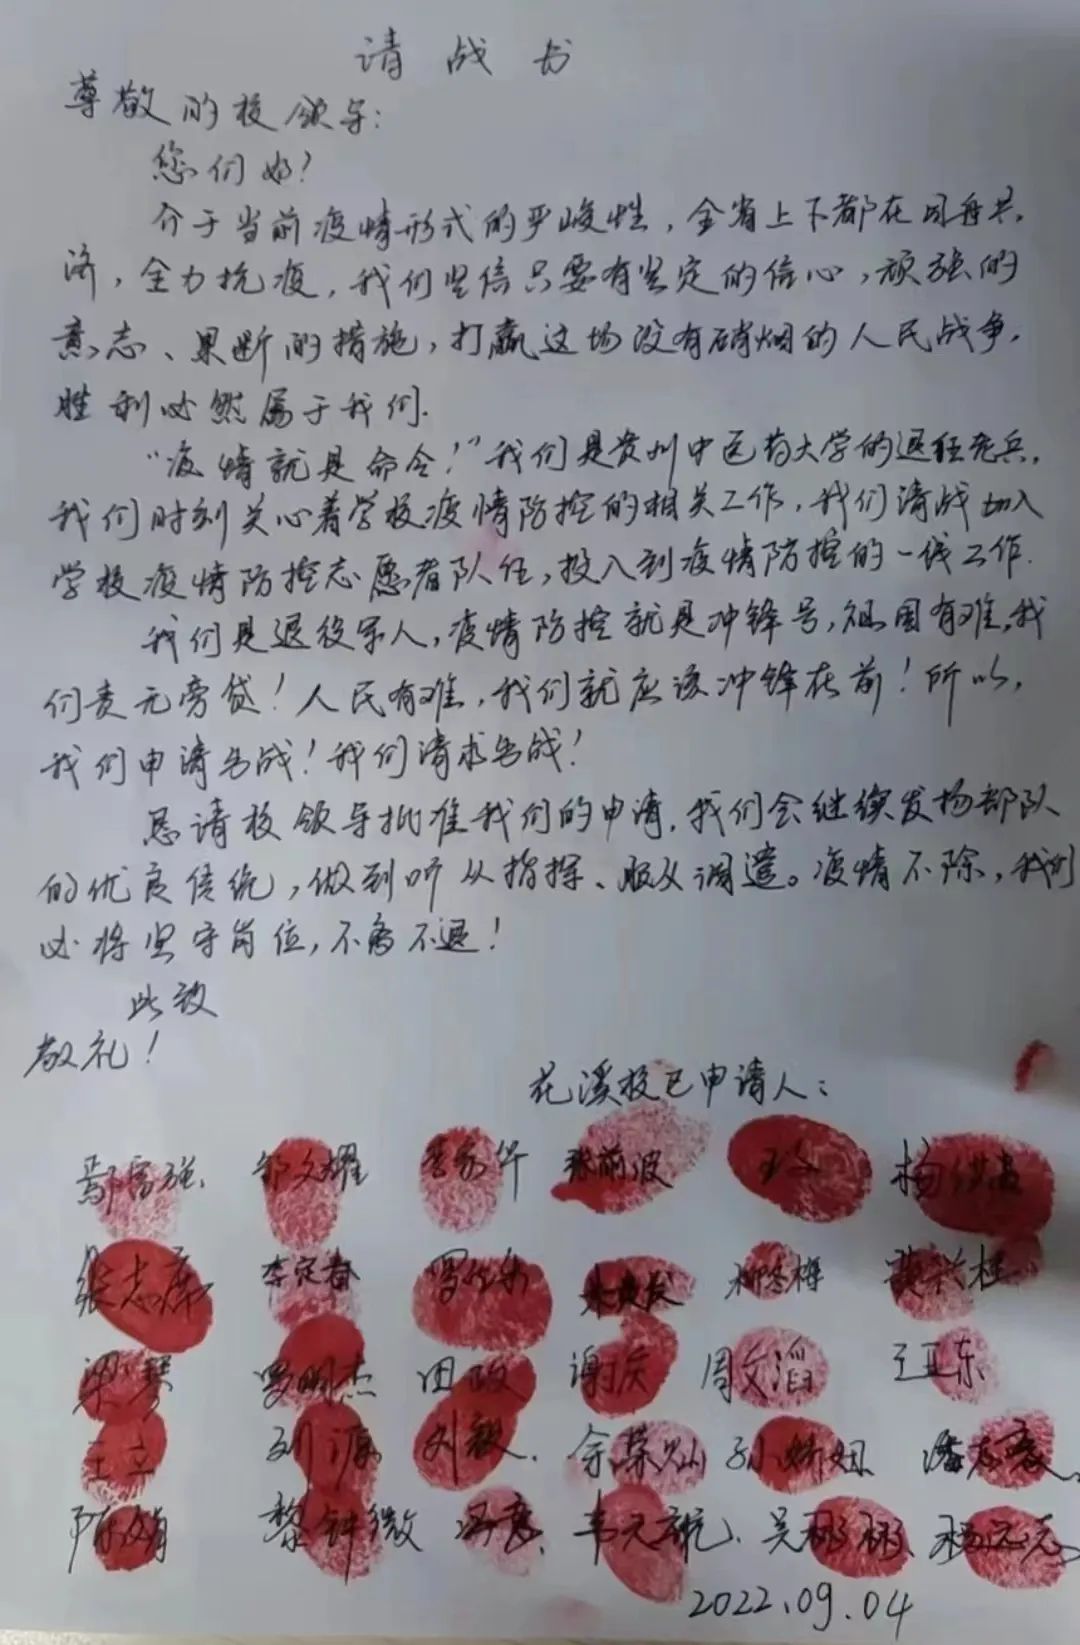 请战书
尊敬的校领导：
您们好！
介于当前疫情形式的严峻性，全省上下都在同舟共
济，全力抗疫，我们坚信只要有坚定的信心，顽强的
意志、果断的措施，打赢这场没有硝烟的人民战争，
胜利必然属于我们.
“疫情就是命令！”我们是贵州中医药大学的退役老兵，
我们时刻关心着学校疫情防控的相关工作，我们请战加入
学校疫情防控志愿者队伍，投入到疫情防控的一线工作.
我们是退役军人，疫情防控就是冲锋号，祖国有难，我
们责无旁贷！人民有难，我们就应该冲锋在前！所以，
我们申请出战！我们请求出战！
恳请校领导批准我们的申请，我们会继续发扬部队
的优良传统，做到听从指挥、服从调遣。疫情不除，我们
必将坚守岗位，不离不退！
此致
敬礼！
花溪校区申请人：
邹文耀 张前波
张志席 李定春 柳冬梅
罗明杰 田政 周文滔 王亚东
王立 刘源 刘毅. 余荣灿 孙娇妞
陈娟 黎钟微
2022.09.04